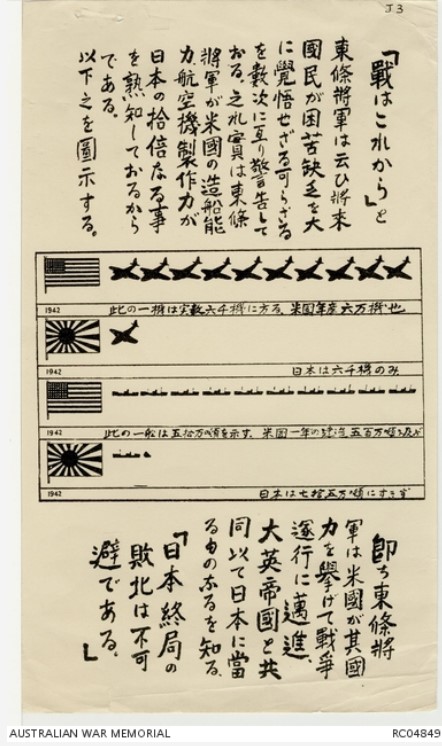 J3
「戰はこれから」と
東條將軍は云ひ將來
國民が困苦缺乏を大
に覺悟せざる可らざる
を數次に亙り警告して
おる。之れ實は東條
將軍が米國の造船能
力、航空機製作力が
日本の拾倍なる事
を熟知しておるから
である。
以下之を圖示する。
1942
此の一機は実数六千機に方る、米国年産六万機也
1942
日本は六千機のみ
1942
此の一船は五拾万噸を示す、米国一年の建造五百万噸に及ぶ
1942
日本は七拾五万噸にすぎず
即ち東條將
軍は米國が其國
力を擧げて戰爭
遂行に邁進、
大英帝國と共
同以て日本に當
る由のなるを知る、
「日本終局の
敗北は不可
避である。」
AUSTRALIAN WAR MEMORIAL
RC04849